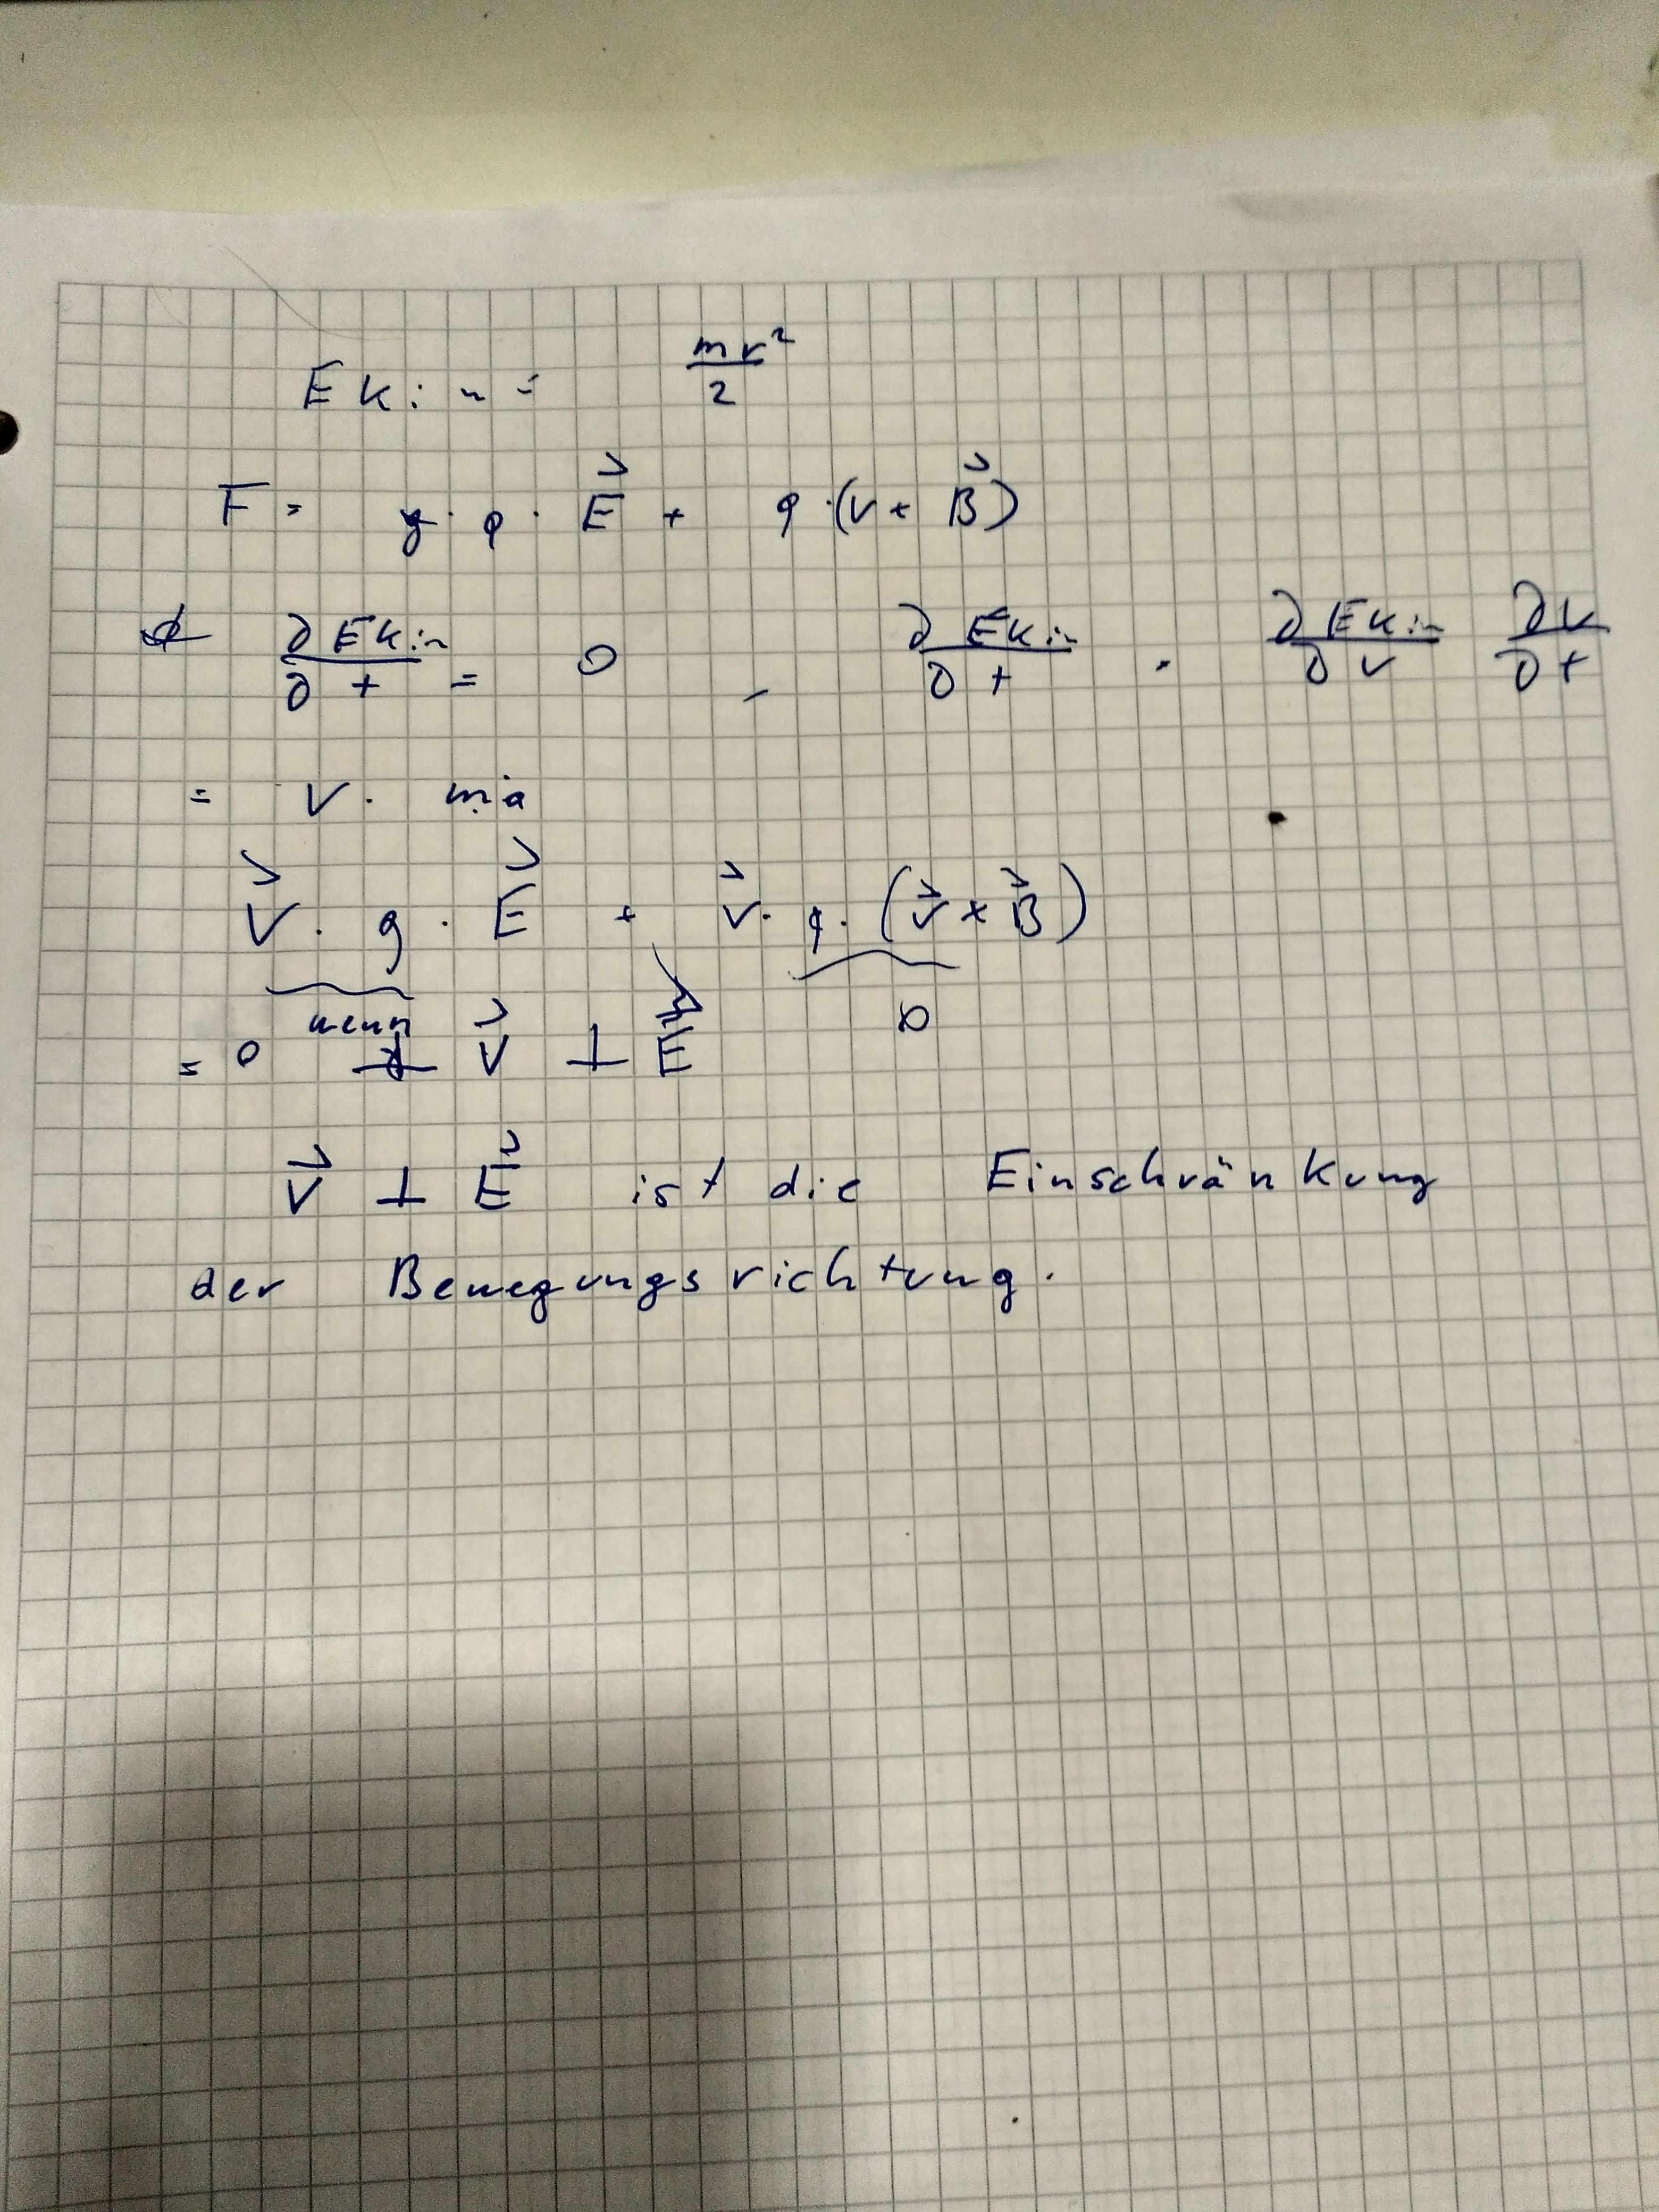 Ekin = mv²/2
F = q · E⃗ + q · (v × B⃗)
∂Ekin/∂t = 0, ∂Ekin/∂t = ∂Ekin/∂v ∂v/∂t
= v · m · a
v⃗ · q · E⃗ + v⃗ · q · (v⃗ × B⃗)
= 0 wenn v⃗ ⊥ E⃗ 0
v⃗ ⊥ E⃗ ist die Einschränkung
der Bewegungsrichtung.